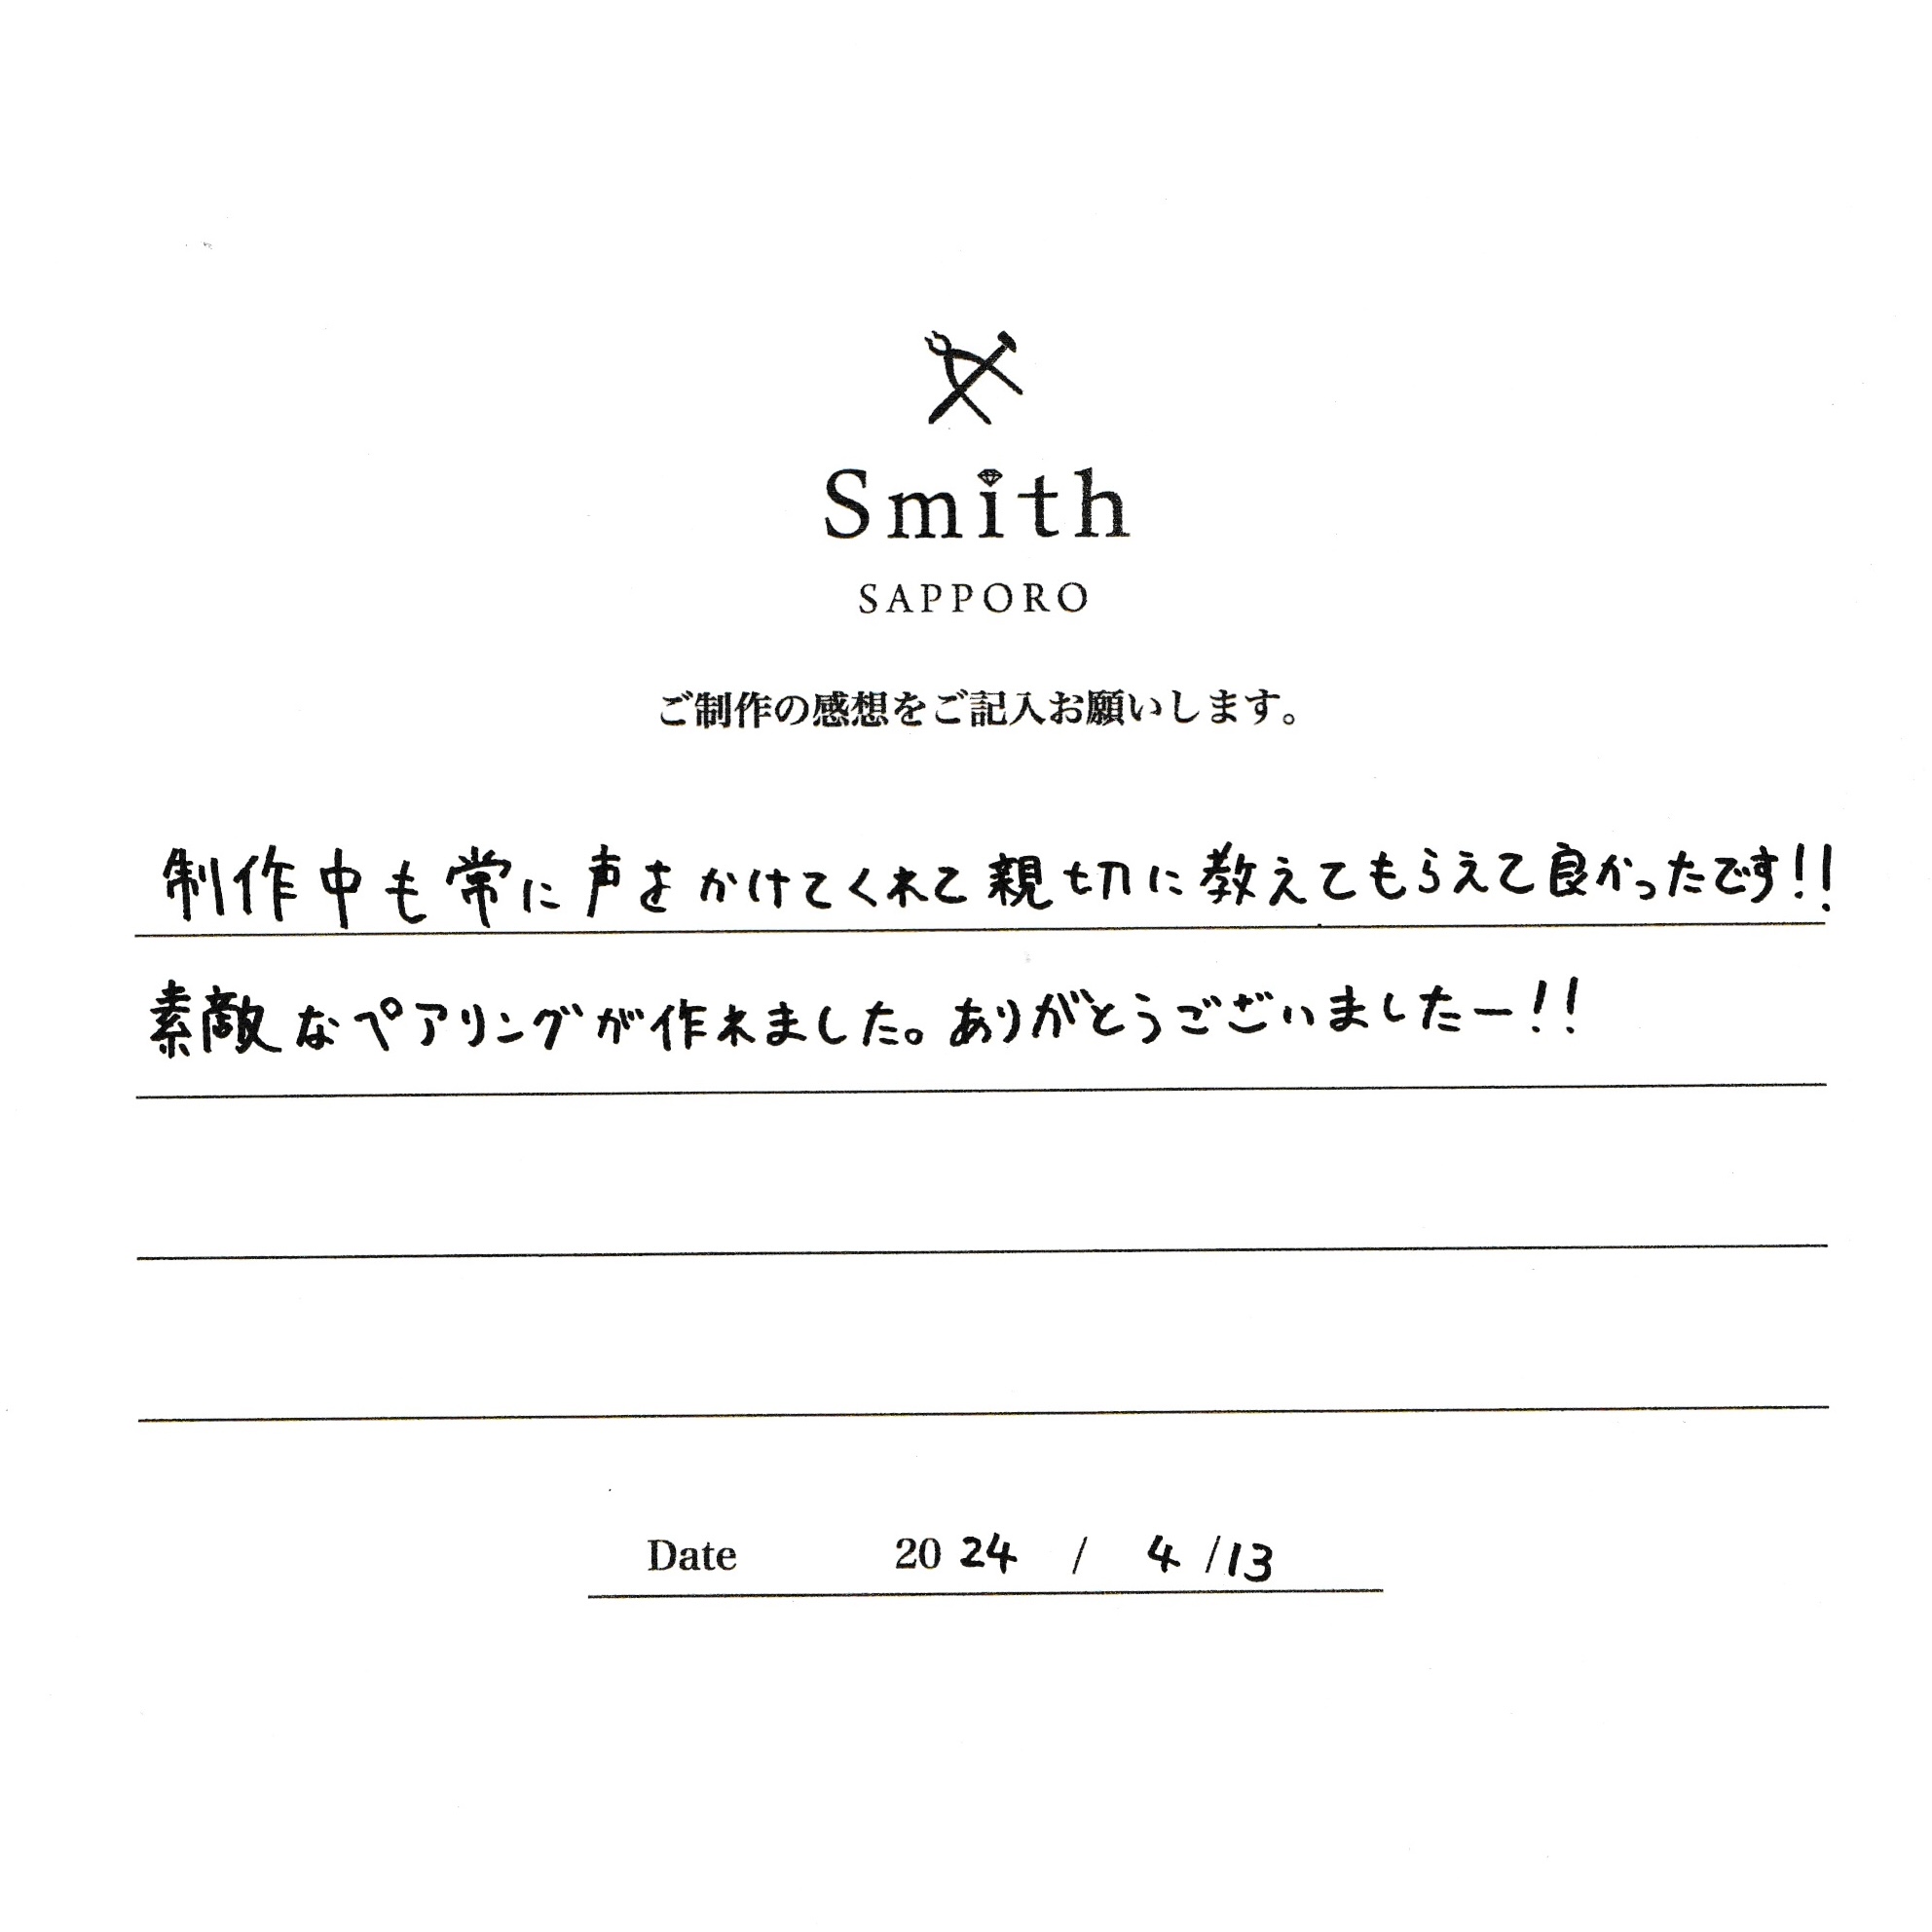 Smith
SAPPORO
ご制作の感想をご記入お願いします。
制作中も常に声をかけてくれて親切に教えてもらえて良かったです!!
素敵なペアリングが作れました。ありがとうございましたー!!
Date 2024 / 4 /13